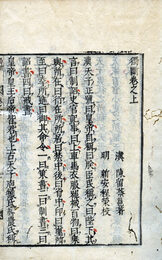 獨斷卷之上
漢 陳留蔡邕著
明 新安程榮校
漢天子正號曰皇帝自稱曰朕臣民稱之曰陛下其
言曰制詔史官記事曰上車馬衣服器械百物曰乘
輿所在曰行在所所居曰禁中後曰省中印曰璽所
至曰幸所進曰御其命令一曰策書二曰制書三曰
詔書四曰戒書
皇帝皇王后帝皆君也上古天子庖犧氏神農氏稱